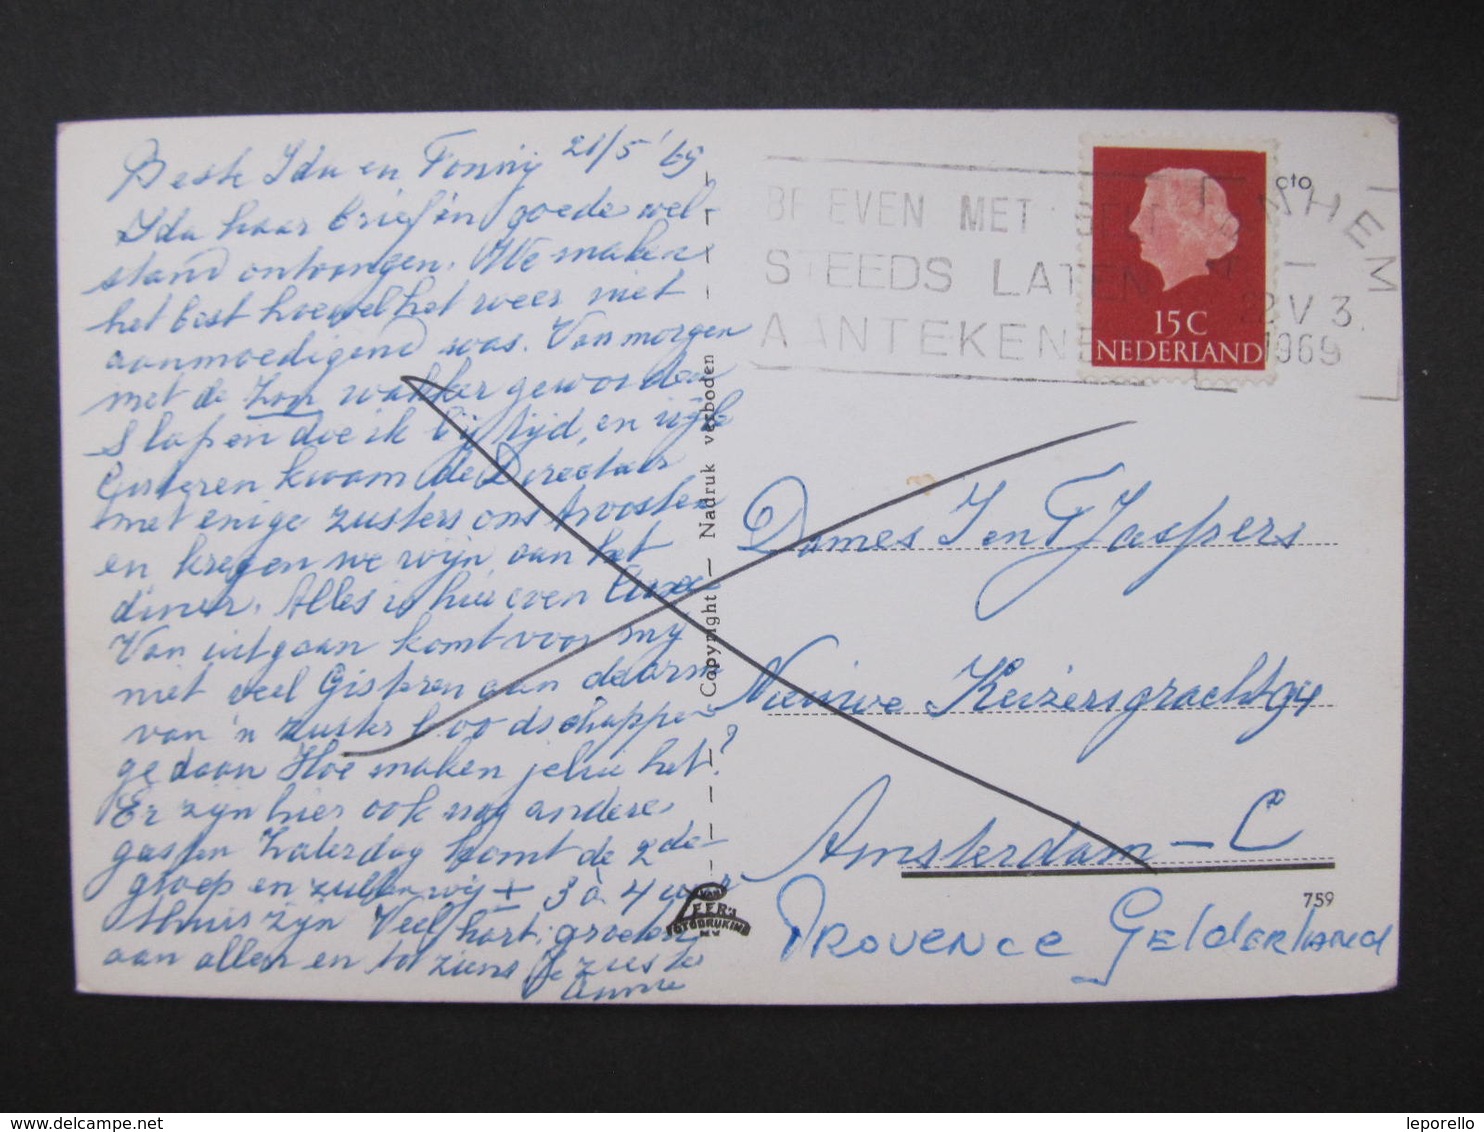 Beste Ida en Fonny 21/5 '69
Ida haar brief in goede wel-
stand ontvangen. We maken
het best hoewel het weer niet
aanmoedigend was. Van morgen
met de zon wakker geworden
Slapen doe ik bij tijd, en wijle
Gisteren kwam de Directeur
met enige zusters ons troosten
en kregen we wijn aan het
diner. Alles is hier even luxe
Van uitgaan komt voor mij
niet veel Gisteren aan de arm
van 'n zuster boodschappen
gedaan Hoe maken jelui het?
Er zijn hier ook nog andere
gasten Zaterdag komt de 2de
groep en zullen wij ± 3 à 4 uur
thuis zijn Veel hart. groeten
aan allen en tot ziens Je zuster
Annie
Copyright — Nadruk verboden
VAN
LEER'S
FOTODRUKIND.
N.V.
cto
BRIEVEN MET GELD
STEEDS LATEN
AANTEKENEN
ARNHEM
22 V 3
1969
15 C
NEDERLAND
Dames I en F Jaspers
Nieuwe Keizersgracht 94
Amsterdam - C
759
PROVENCE GELDERLAND
the-wau.com
leporello